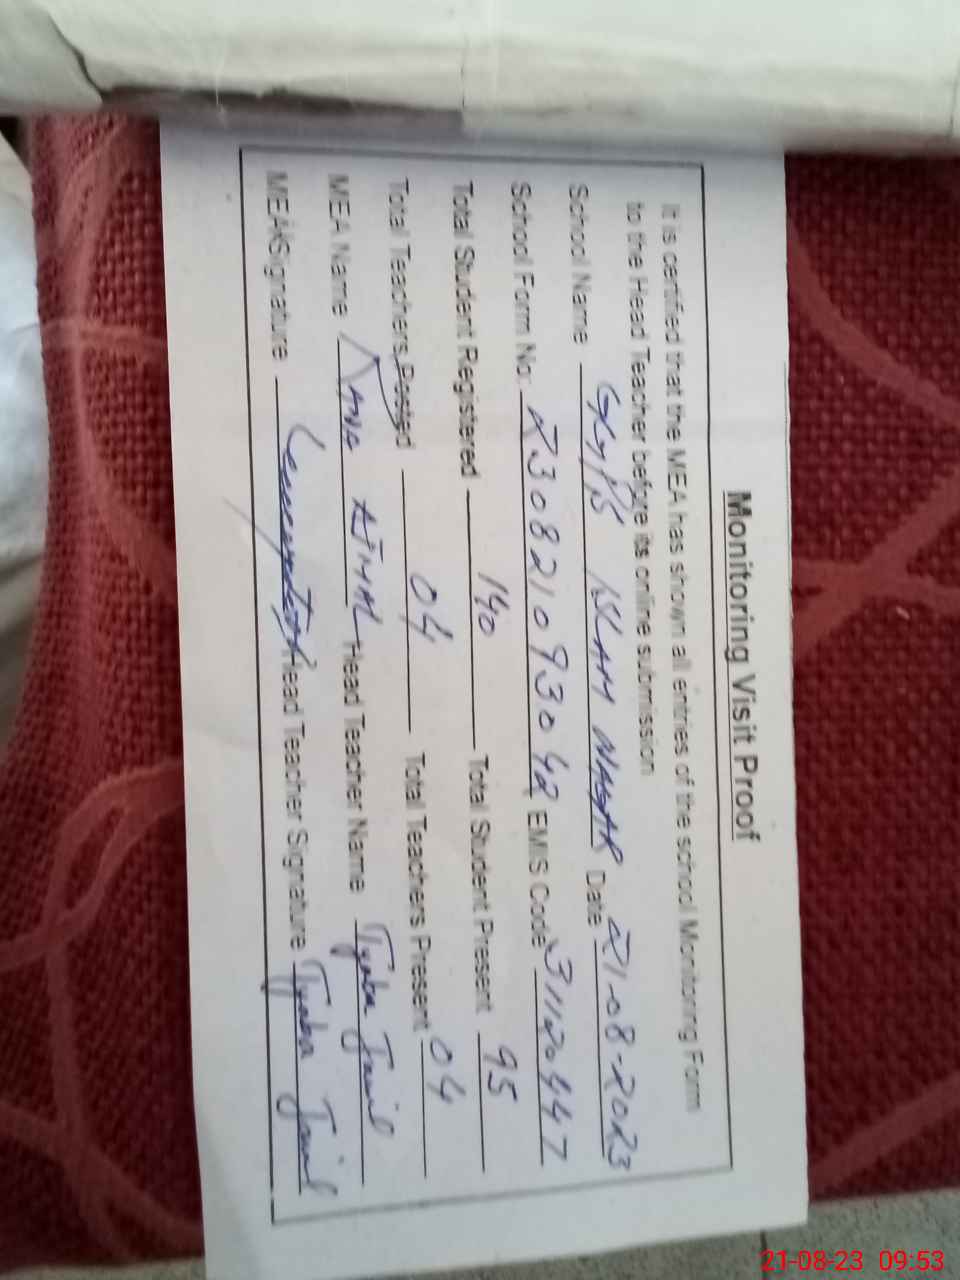 Monitoring Visit Proof
It is certified that the MEA has shown all entries of the school Monitoring Form
to the Head Teacher before its online submission
School Name ISLAM NAGAR Date 21-08-2023
School Form No: R30821093042 EMIS Code 31120447
Total Student Registered 140 Total Student Present 95
Total Teachers Posted 04 Total Teachers Present 04
MEA Name RANA AJMAL Head Teacher Name Tyaba Jamil
MEA Signature Head Teacher Signature Tyaba Jamil
21-08-23 09:53